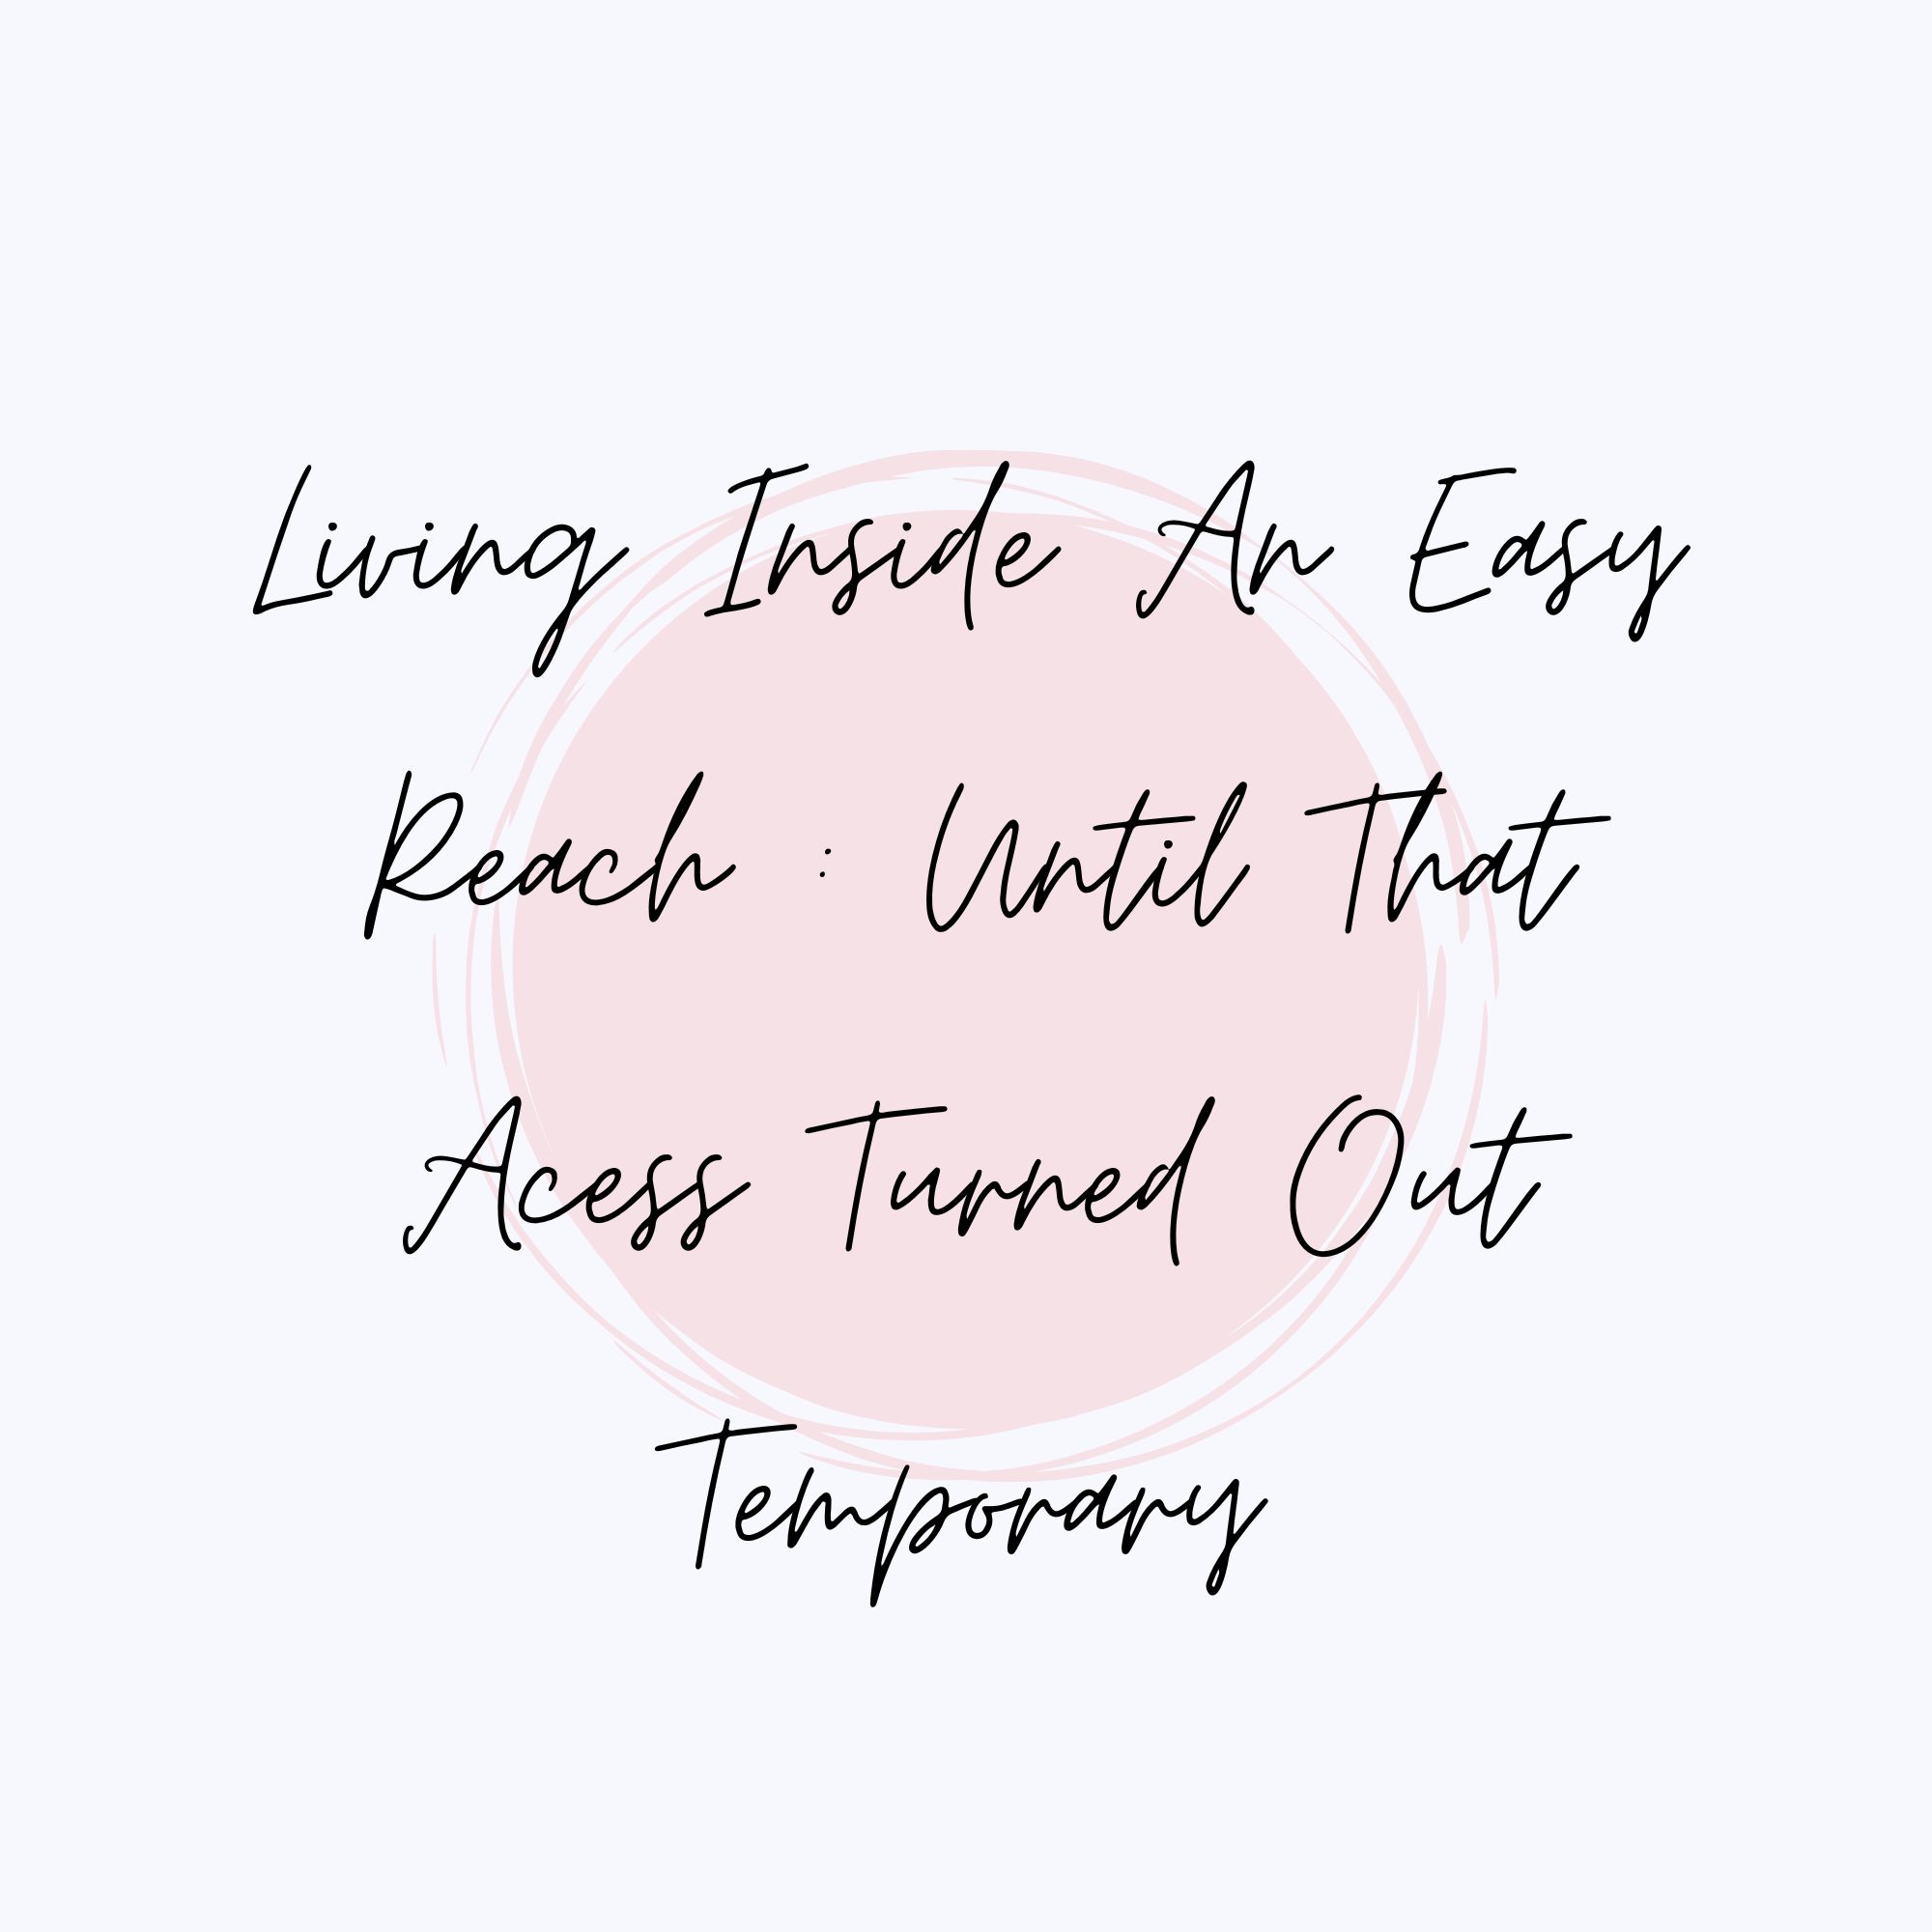 Living Inside An Easy
Reach : Until That
Acess Turned Out
Temporary